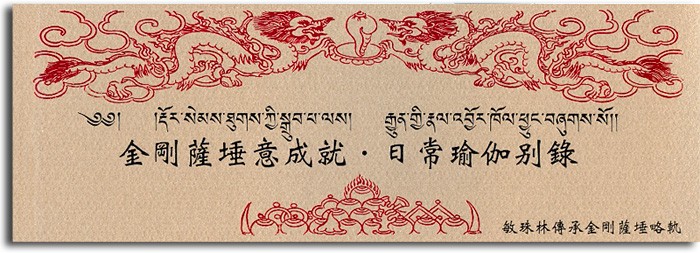 ༄༅། །རྡོར་སེམས་ཐུགས་ཀྱི་སྒྲུབ་པ་ལས། རྒྱུན་གྱི་རྣལ་འབྱོར་ཁོལ་ཕྱུང་བཞུགས་སོ།།
金剛薩埵意成就·日常瑜伽别錄
敏珠林傳承金剛薩埵略軌